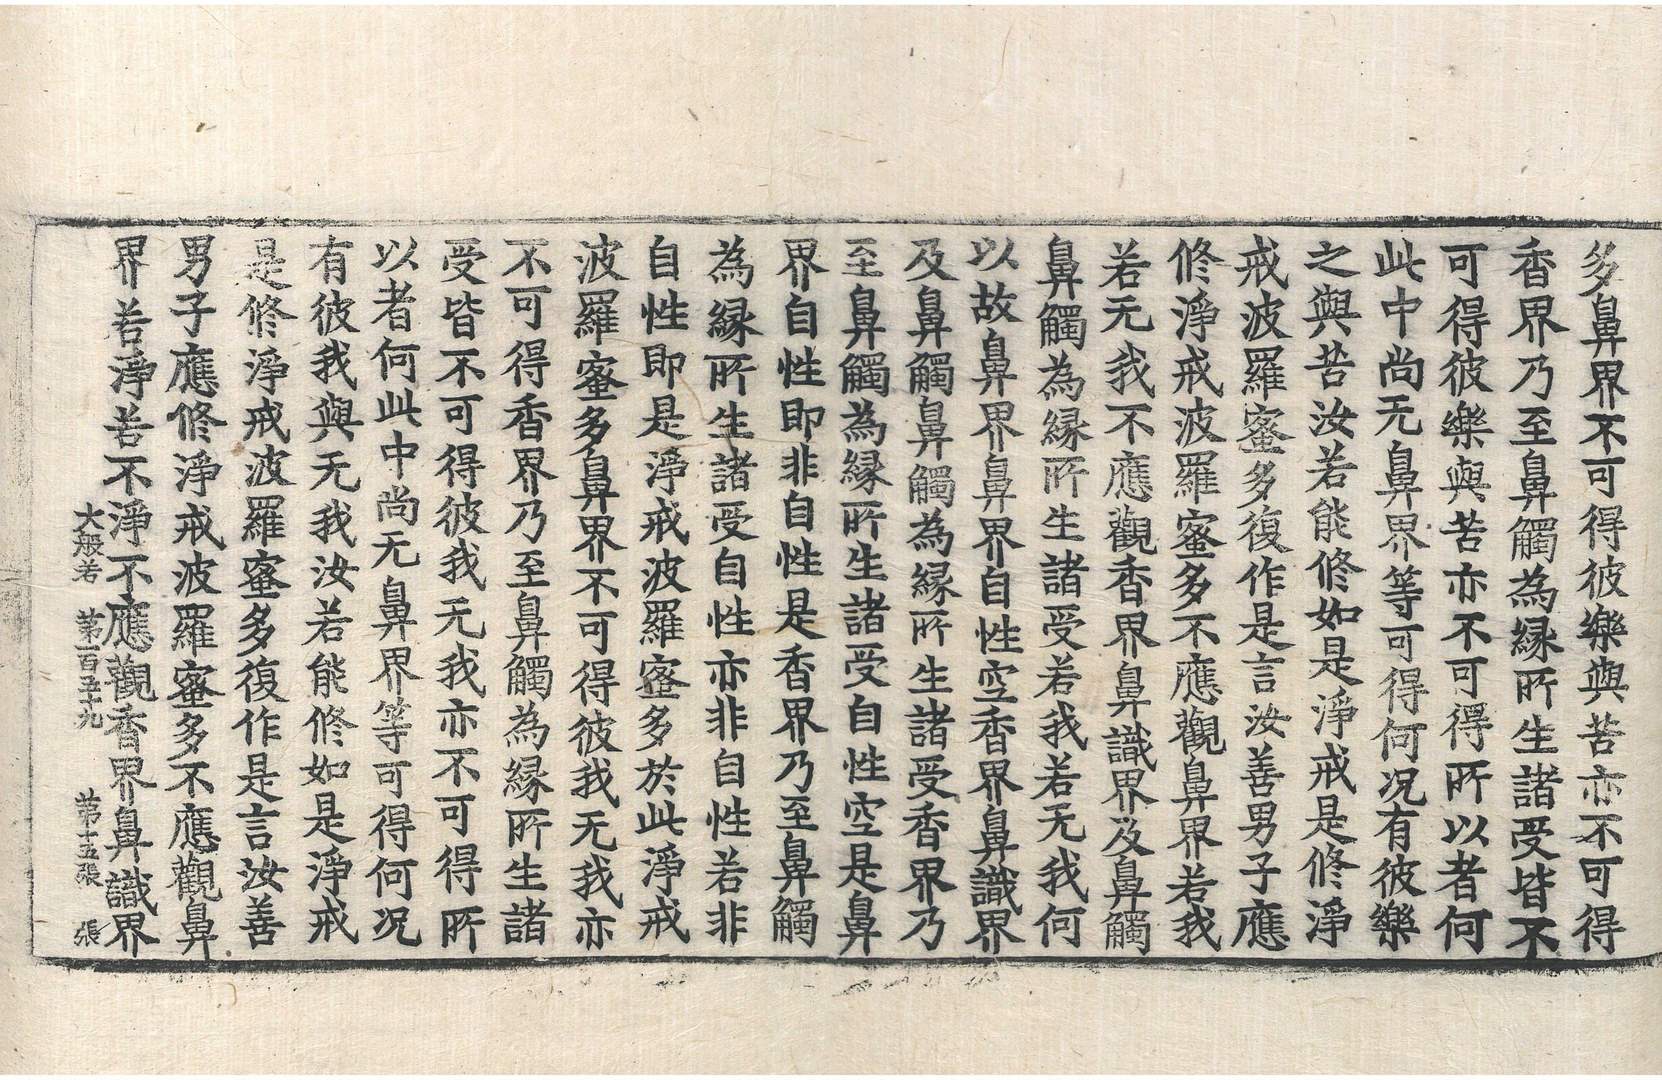 多鼻界不可得彼樂與苦亦不可得
香界乃至鼻觸為縁所生諸受皆不
可得彼樂與苦亦不可得所以者何
此中尚无鼻界等可得何况有彼樂
之與苦汝若能修如是淨戒是修淨
戒波羅蜜多復作是言汝善男子應
修淨戒波羅蜜多不應觀鼻界若我
若无我不應觀香界鼻識界及鼻觸
鼻觸為縁所生諸受若我若无我何
以故鼻界鼻界自性空香界鼻識界
及鼻觸鼻觸為縁所生諸受香界乃
至鼻觸為縁所生諸受自性空是鼻
界自性即非自性是香界乃至鼻觸
為縁所生諸受自性亦非自性若非
自性即是淨戒波羅蜜多於此淨戒
波羅蜜多鼻界不可得彼我无我亦
不可得香界乃至鼻觸為縁所生諸
受皆不可得彼我无我亦不可得所
以者何此中尚无鼻界等可得何况
有彼我與无我汝若能修如是淨戒
是修淨戒波羅蜜多復作是言汝善
男子應修淨戒波羅蜜多不應觀鼻
界若淨若不淨不應觀香界鼻識界
大般若 苐一百五十九 苐十五張 張